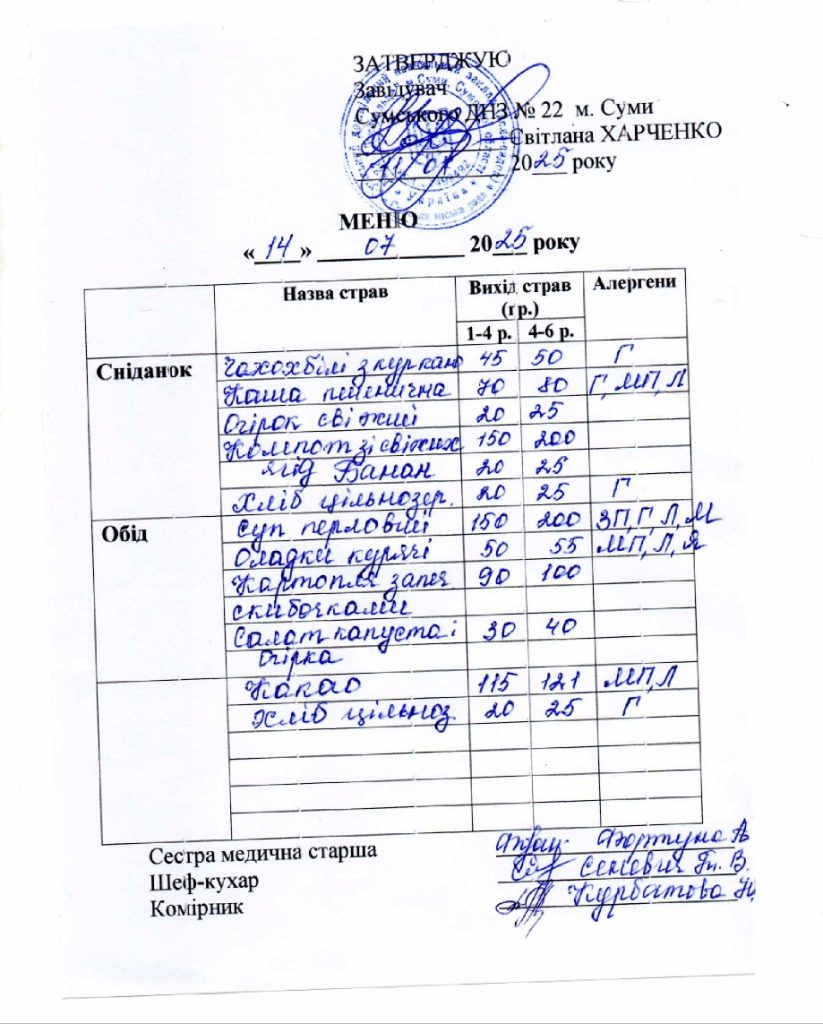 ЗАТВЕРДЖУЮ
Завідувач
Сумського ДНЗ № 22 м. Суми
Світлана ХАРЧЕНКО
11 07 2025 року
МЕНЮ
« 14 » 07 2025 року
Назва страв Вихід страв (гр.) Алергени
1-4 р. 4-6 р.
Сніданок Чахохбілі з куркою 45 50 Г
Каша пшенична 70 80 Г, МП, Л
Огірок свіжий 20 25
Компот зі свіжих 150 200
ягід Банан 20 25
Хліб цільнозер. 20 25 Г
Обід Суп перловий 150 200 ЗП, Г, Л, М
Оладки курячі 50 55 МП, Л, Я
Картопля запеч 90 100
скибочками
Салат капуста і 30 40
огірка
Какао 115 121 МП, Л
Хліб цільноз 20 25 Г
Сестра медична старша Фортуна А
Шеф-кухар
Комірник Курбатова Н